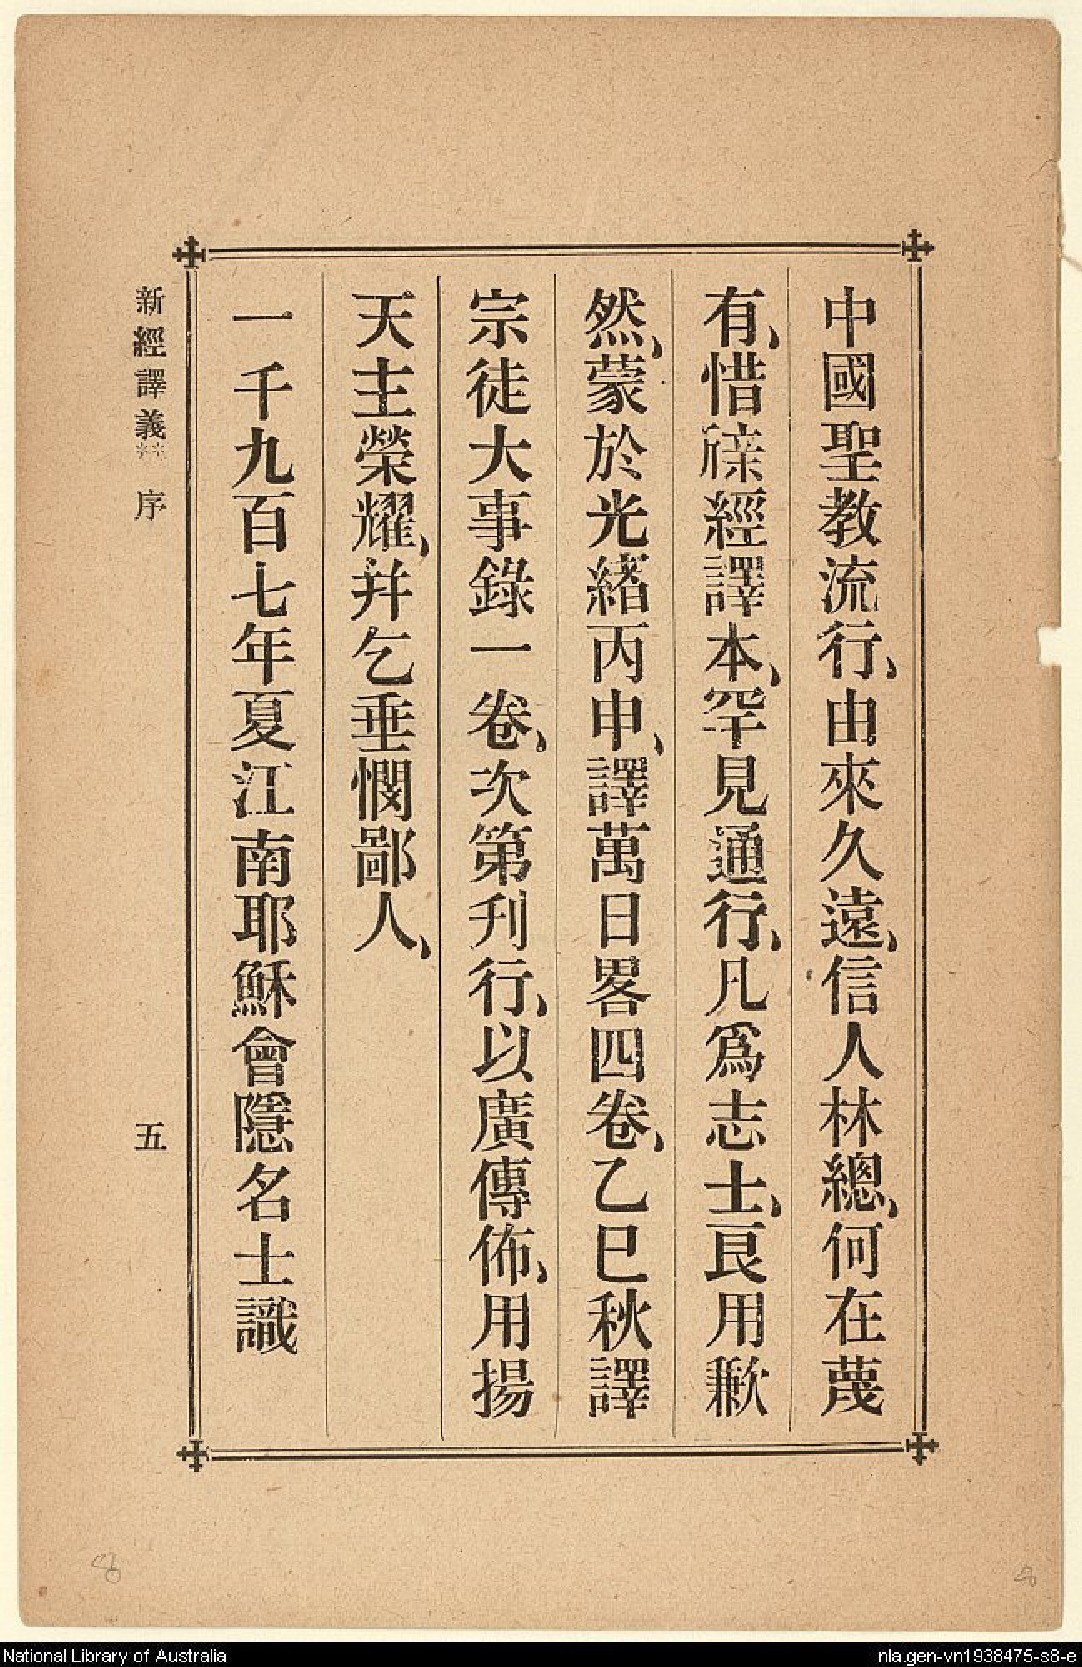 中國聖教流行、由來久遠、信人林總、何在蔑
有、惜經譯本、罕見通行、凡爲志士、良用歉
然、蒙於光緒丙申、譯萬日畧四卷、乙巳秋譯
宗徒大事錄一卷、次第刊行、以廣傳佈、用揚
天主榮耀、幷乞垂憫鄙人、
一千九百七年夏江南耶穌會隱名士識
新經譯義 序 五
8
8
National Library of Australia
nla.gen-vn1938475-s8-e